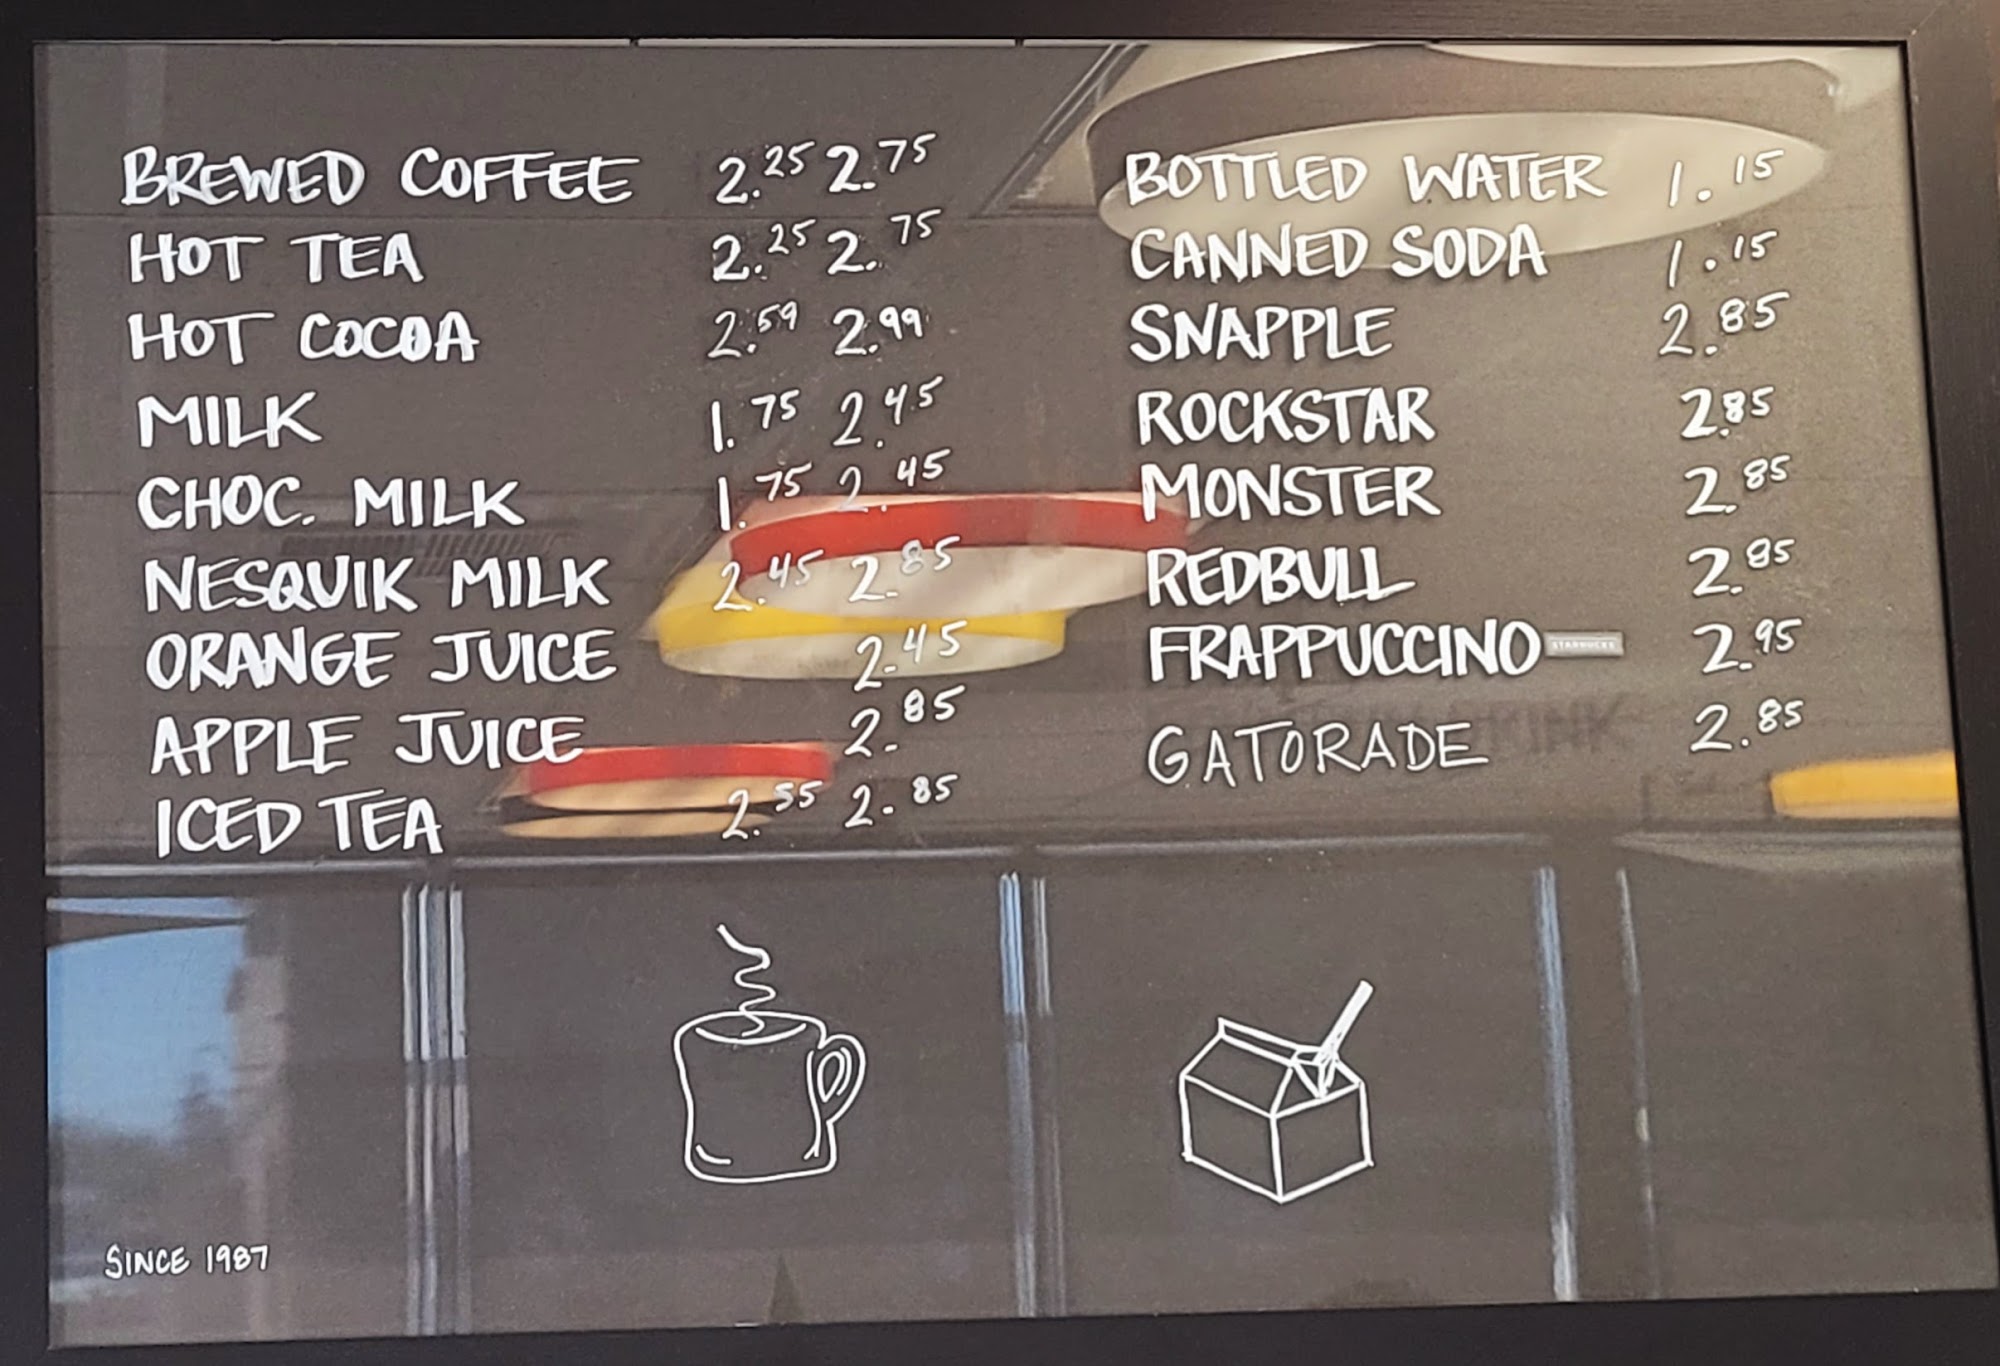 BREWED COFFEE 2.25 2.75
HOT TEA 2.25 2.75
HOT COCOA 2.59 2.99
MILK 1.75 2.45
CHOC. MILK 1.75 2.45
NESQUIK MILK 2.45 2.85
ORANGE JUICE 2.45
APPLE JUICE 2.85
ICED TEA 2.55 2.85
BOTTLED WATER 1.15
CANNED SODA 1.15
SNAPPLE 2.85
ROCKSTAR 2.85
MONSTER 2.85
REDBULL 2.85
FRAPPUCCINO STARBUCKS 2.95
GATORADE 2.85
SINCE 1987